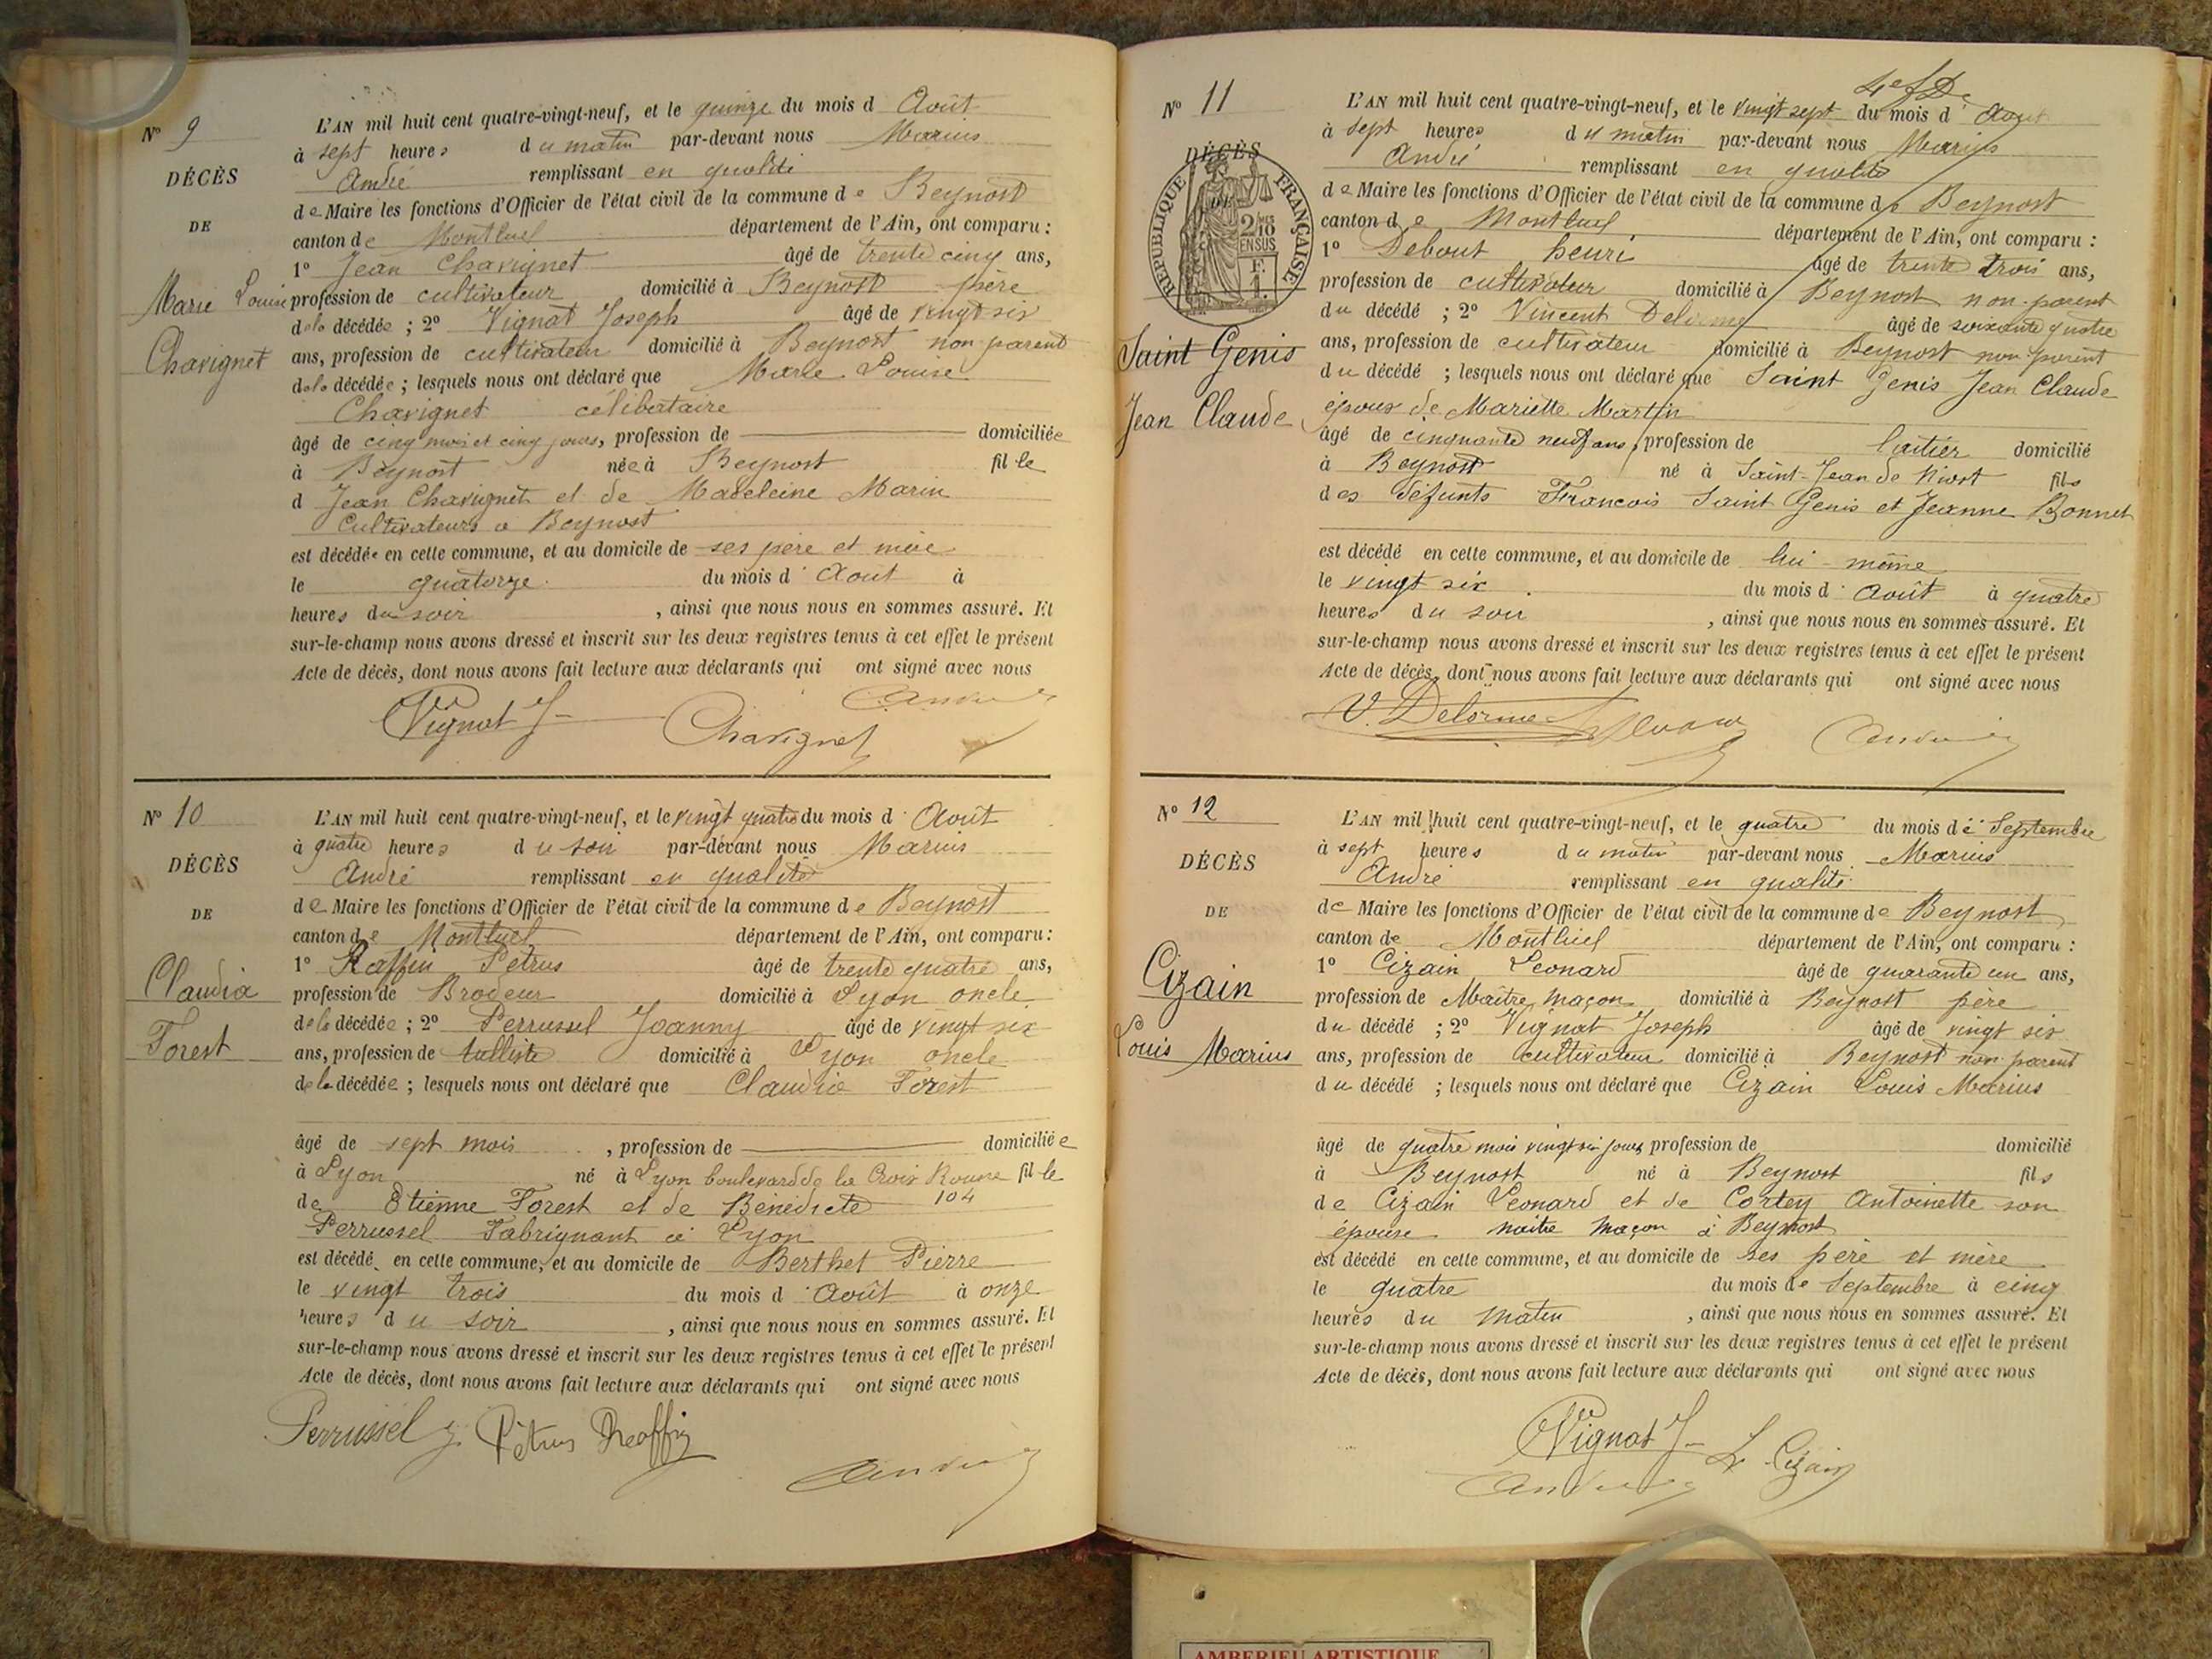 N° 9
DÉCÈS
DE
Marie Louise
Chavignet
L'AN mil huit cent quatre-vingt-neuf, et le quinze du mois d Août
à sept heures du matin par-devant nous Marius
André remplissant en qualité
de Maire les fonctions d'Officier de l'état civil de la commune de Beynost
canton de Montluel département de l'Ain, ont comparu :
1° Jean Chavignet âgé de trente cinq ans,
profession de cultivateur domicilié à Beynost père
de la décédée ; 2° Vignat Joseph âgé de vingt six
ans, profession de cultivateur domicilié à Beynost non parent
de la décédée ; lesquels nous ont déclaré que Marie Louise
Chavignet célibataire
âgé de cinq mois et cinq jours, profession de domiciliée
à Beynost née à Beynost fille
d Jean Chavignet et de Madeleine Marin
Cultivateurs a Beynost
est décédée en cette commune, et au domicile de ses père et mère
le quatorze du mois d Août à
heures du soir , ainsi que nous nous en sommes assuré. Et
sur-le-champ nous avons dressé et inscrit sur les deux registres tenus à cet effet le présent
Acte de décès, dont nous avons fait lecture aux déclarants qui ont signé avec nous
Vignat J Chavignet André
N° 10
DÉCÈS
DE
Claudia
Forest
L'AN mil huit cent quatre-vingt-neuf, et le vingt quatre du mois d Août
à quatre heures du soir par-devant nous Marius
André remplissant en qualité
de Maire les fonctions d'Officier de l'état civil de la commune de Beynost
canton de Montluel département de l'Ain, ont comparu :
1° Raffin Pétrus âgé de trente quatre ans,
profession de Brodeur domicilié à Lyon oncle
de la décédée ; 2° Perrussel Joanny âgé de vingt six
ans, profession de tulliste domicilié à Lyon oncle
de la décédée ; lesquels nous ont déclaré que Claudia Forest
âgé de sept mois , profession de domiciliée
à Lyon né à Lyon boulevard de la Croix Rousse fille
de Etienne Forest et de Bénédicte 104
Perrussel Fabriquant à Lyon
est décédé en cette commune, et au domicile de Berthet Pierre
le vingt trois du mois d Août à onze
heures du soir , ainsi que nous nous en sommes assuré. Et
sur-le-champ nous avons dressé et inscrit sur les deux registres tenus à cet effet le présent
Acte de décès, dont nous avons fait lecture aux déclarants qui ont signé avec nous
Perrussel J Pétrus Raffin
André
N° 11
DÉCÈS
DE
RÉPUBLIQUE FRANÇAISE
2/10 EN SUS
F.
1.
Saint Genis
Jean Claude
L'AN mil huit cent quatre-vingt-neuf, et le vingt sept du mois d Août
à sept heures du matin par-devant nous Marius
André remplissant en qualité
de Maire les fonctions d'Officier de l'état civil de la commune de Beynost
canton de Montluel département de l'Ain, ont comparu :
1° Debout henri âgé de trente trois ans,
profession de cultivateur domicilié à Beynost non parent
du décédé ; 2° Vincent Delorme âgé de soixante quatre
ans, profession de cultivateur domicilié à Beynost non parent
du décédé ; lesquels nous ont déclaré que Saint Genis Jean Claude
époux de Mariette Martin
âgé de cinquante neuf ans, profession de laitier domicilié
à Beynost né à Saint-Jean de Niost fils
des défunts Francois Saint Genis et Jeanne Bonnet
est décédé en cette commune, et au domicile de lui même
le vingt six du mois d Août à quatre
heures du soir , ainsi que nous nous en sommes assuré. Et
sur-le-champ nous avons dressé et inscrit sur les deux registres tenus à cet effet le présent
Acte de décès, dont nous avons fait lecture aux déclarants qui ont signé avec nous
V. Delorme André
N° 12
DÉCÈS
DE
Cizain
Louis Marius
L'AN mil huit cent quatre-vingt-neuf, et le quatre du mois de Septembre
à sept heures du matin par-devant nous Marius
André remplissant en qualité
de Maire les fonctions d'Officier de l'état civil de la commune de Beynost
canton de Montluel département de l'Ain, ont comparu :
1° Cizain Leonard âgé de quarante un ans,
profession de Maitre maçon domicilié à Beynost père
du décédé ; 2° Vignat Joseph âgé de vingt six
ans, profession de cultivateur domicilié à Beynost non parent
du décédé ; lesquels nous ont déclaré que Cizain Louis Marius
âgé de quatre mois vingt six jours profession de domicilié
à Beynost né à Beynost fils
de Cizain Leonard et de Cortey Antoinette son
épouse maitre maçon à Beynost
est décédé en cette commune, et au domicile de ses père et mère
le quatre du mois de Septembre à cinq
heures du matin , ainsi que nous nous en sommes assuré. Et
sur-le-champ nous avons dressé et inscrit sur les deux registres tenus à cet effet le présent
Acte de décès, dont nous avons fait lecture aux déclarants qui ont signé avec nous
Vignat J L Cizain
André
AMBERIEU ARTISTIQUE